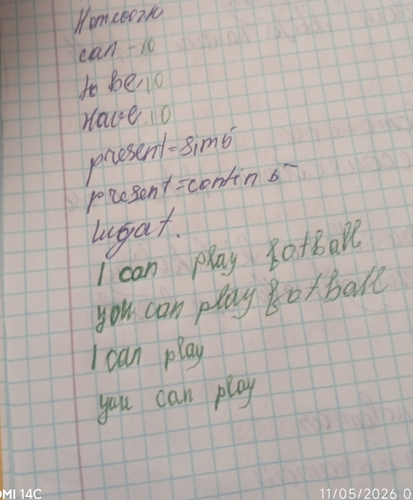 Homework
can - 10
to be 10
Have 10
present = simp 5
present = contin 5
lugat.
I can play fotball
you can play fotball
I can play
you can play
MI 14C
11/05/2026 0